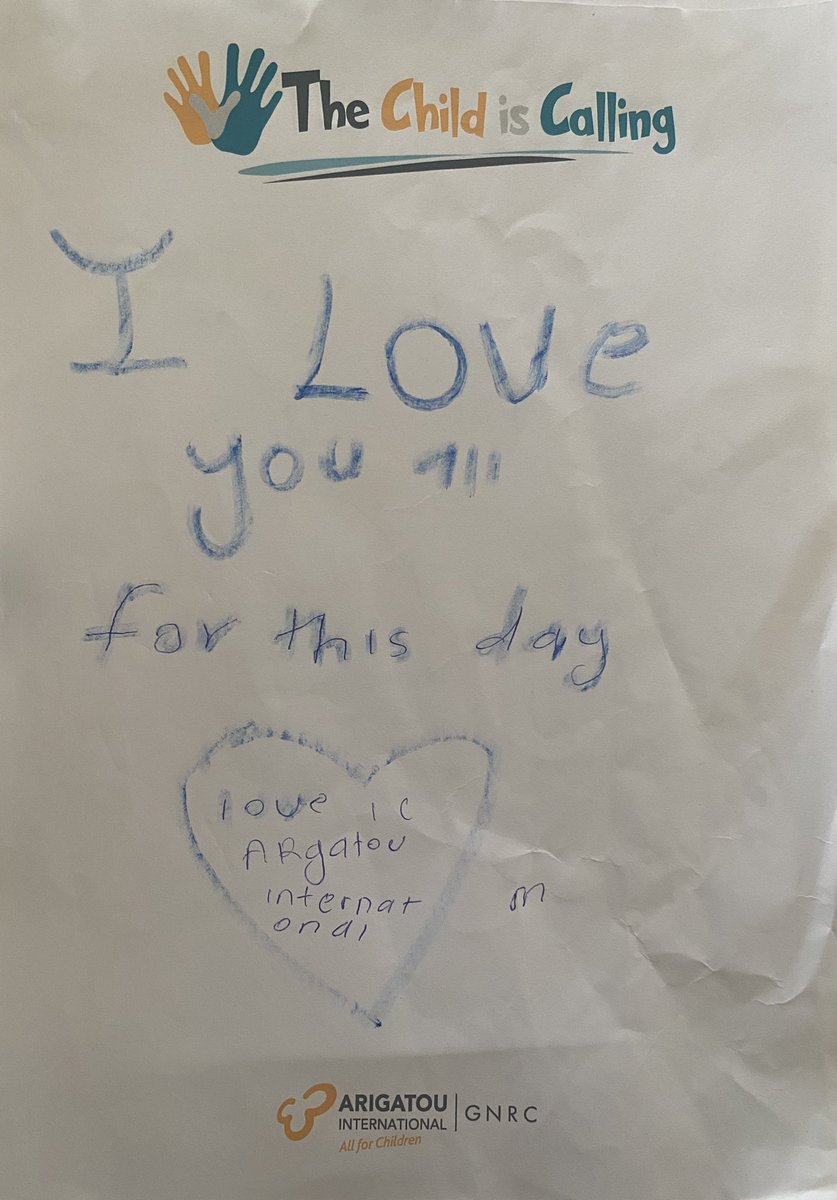 The Child is Calling
I Love
you all
for this day
love ic
ARgatou
internat
onal
m
ARIGATOU
INTERNATIONAL
All for Children
GNRC